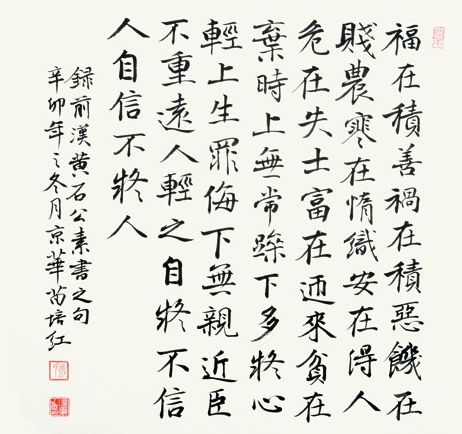 福在積善禍在積惡饑在
賤農寒在惰織安在得人
危在失士富在迎來貧在
棄時上無常躁下多疑心
輕上生罪侮下無親近臣
不重遠人輕之自疑不信
人自信不疑人
録前漢黄石公素書之句
辛卯年之冬月京華苗培红